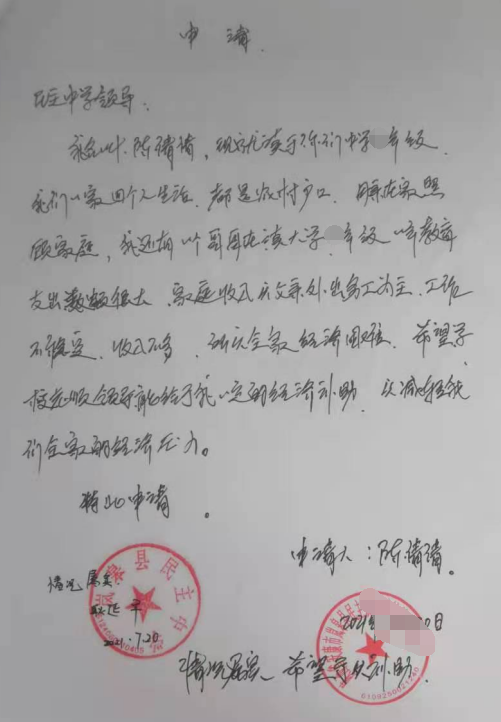 申请
民主中学领导:
我名叫陈倩倩,现就读于你们中学 年级.
我们一家四个人生活.都是农村户口.母亲在家照
顾家庭,我还有一个哥哥在读大学 年级 一年教育
支出数额很大.家庭收入以父亲外出务工为主.工作
不稳定.收入不多,所以全家经济困难.希望学
校 领导能给予我一定的经济补助.以减轻我
们全家的经济压力。
特此申请。
申请人:陈倩倩。
情况属实.
2021.7.20
岚皋县民主中
2021 0日
情况属实 希望予以补助.
6109250021240